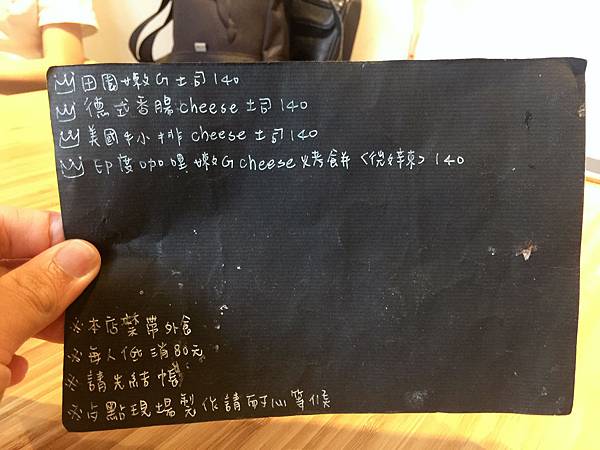 田園嫩G土司 140
德式香腸cheese土司 140
美國牛小排 cheese 土司 140
印度咖哩嫩G cheese 烤餅 <微辣> 140
※本店禁帶外食
※每人低消80元
※請先結帳
※占點現場製作請耐心等候